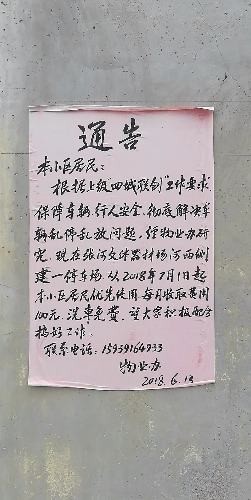 通告
本小区居民:
根据上级四城联创"工作要求
保障车辆,行人安全,彻底解决车
辆乱停乱放问题,经物业办研
究,现在张河文体器材场河西侧
建一停车场,从2018年7月1日起
本小区居民优先使用,每月收取费用
100元,洗车免费,望大家积极配合
搞好工作.
联系电话:15939164933
物业办
2018.6.19